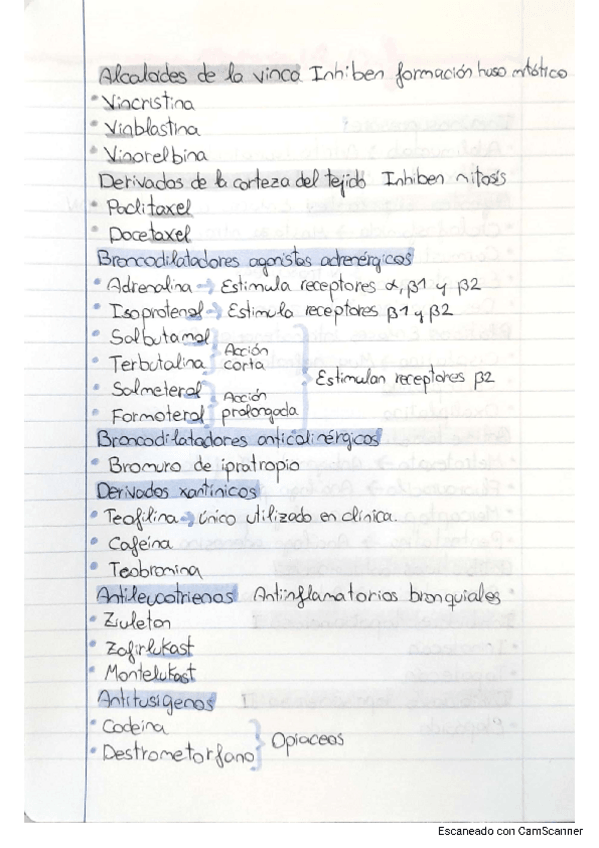 Alcaloides de la vinca Inhiben formación huso mitótico
• Vincristina
• Vinblastina
• Vinorelbina
Derivados de la corteza del tejido Inhiben mitosis
• Paclitaxel
• Docetaxel
Broncodilatadores agonistas adrenérgicos
• Adrenalina → Estimula receptores α, β1 y β2
• Isoprotenol → Estimula receptores β1 y β2
• Salbutamol
• Terbutalina
Acción corta
• Salmeterol
• Formoterol
Acción prolongada
Estimulan receptores β2
Broncodilatadores anticolinérgicos
• Bromuro de ipratropio
Derivados xantínicos
• Teofilina → único utilizado en clínica.
• Cafeína
• Teobromina
Antileucotrienos Antiinflamatorios bronquiales
• Ziuleton
• Zafirlukast
• Montelukast
Antitusígenos
• Codeina
• Destrometorfano
Opiaceos
Escaneado con CamScanner